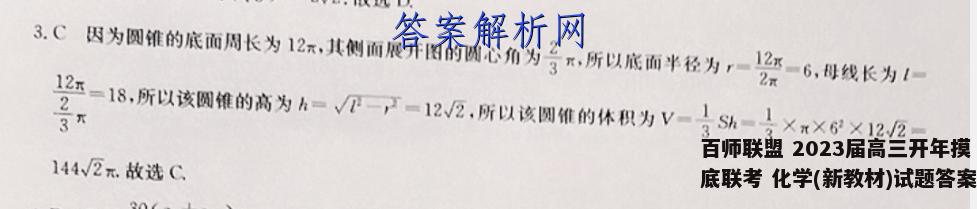 答案解析网
3. C 因为圆锥的底面周长为 12π,其侧面展开图的圆心角为 2/3 π,所以底面半径为 r=12π/2π=6,母线长为 l=
12π/(2/3 π)=18,所以该圆锥的高为 h=√(l²-r²)=12√2,所以该圆锥的体积为 V=1/3 Sh=1/3×π×6²×12√2=
144√2π. 故选 C.
百师联盟 2023届高三开年摸
底联考 化学(新教材)试题答案